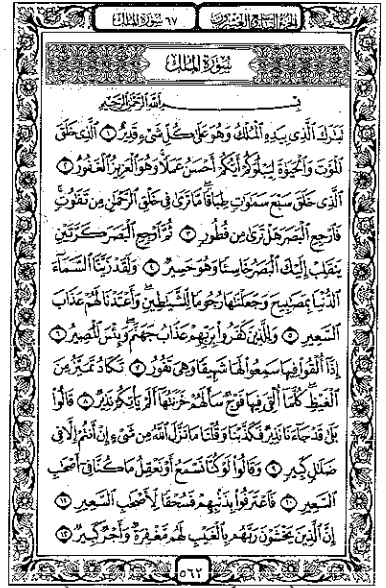 الجزء التاسع والعشرون
٦٧ سورة الملك
سورة الملك
بسم الله الرحمن الرحيم
تَبَٰرَكَ ٱلَّذِى بِيَدِهِ ٱلْمُلْكُ وَهُوَ عَلَىٰ كُلِّ شَىْءٍ قَدِيرٌ ١ ٱلَّذِى خَلَقَ
ٱلْمَوْتَ وَٱلْحَيَوٰةَ لِيَبْلُوَكُمْ أَيُّكُمْ أَحْسَنُ عَمَلًا وَهُوَ ٱلْعَزِيزُ ٱلْغَفُورُ ٢
ٱلَّذِى خَلَقَ سَبْعَ سَمَٰوَٰتٍ طِبَاقًا مَّا تَرَىٰ فِى خَلْقِ ٱلرَّحْمَٰنِ مِن تَفَٰوُتٍ
فَٱرْجِعِ ٱلْبَصَرَ هَلْ تَرَىٰ مِن فُطُورٍ ٣ ثُمَّ ٱرْجِعِ ٱلْبَصَرَ كَرَّتَيْنِ
يَنقَلِبْ إِلَيْكَ ٱلْبَصَرُ خَاسِئًا وَهُوَ حَسِيرٌ ٤ وَلَقَدْ زَيَّنَّا ٱلسَّمَآءَ
ٱلدُّنْيَا بِمَصَٰبِيحَ وَجَعَلْنَٰهَا رُجُومًا لِّلشَّيَٰطِينِ وَأَعْتَدْنَا لَهُمْ عَذَابَ
ٱلسَّعِيرِ ٥ وَلِلَّذِينَ كَفَرُوا۟ بِرَبِّهِمْ عَذَابُ جَهَنَّمَ وَبِئْسَ ٱلْمَصِيرُ ٦
إِذَآ أُلْقُوا۟ فِيهَا سَمِعُوا۟ لَهَا شَهِيقًا وَهِىَ تَفُورُ ٧ تَكَادُ تَمَيَّزُ مِنَ
ٱلْغَيْظِ كُلَّمَآ أُلْقِىَ فِيهَا فَوْجٌ سَأَلَهُمْ خَزَنَتُهَآ أَلَمْ يَأْتِكُمْ نَذِيرٌ ٨ قَالُوا۟
بَلَىٰ قَدْ جَآءَنَا نَذِيرٌ فَكَذَّبْنَا وَقُلْنَا مَا نَزَّلَ ٱللَّهُ مِن شَىْءٍ إِنْ أَنتُمْ إِلَّا فِى
ضَلَٰلٍ كَبِيرٍ ٩ وَقَالُوا۟ لَوْ كُنَّا نَسْمَعُ أَوْ نَعْقِلُ مَا كُنَّا فِىٓ أَصْحَٰبِ
ٱلسَّعِيرِ ١٠ فَٱعْتَرَفُوا۟ بِذَنۢبِهِمْ فَسُحْقًا لِّأَصْحَٰبِ ٱلسَّعِيرِ ١١
إِنَّ ٱلَّذِينَ يَخْشَوْنَ رَبَّهُم بِٱلْغَيْبِ لَهُم مَّغْفِرَةٌ وَأَجْرٌ كَبِيرٌ ١٢
٥٦٢